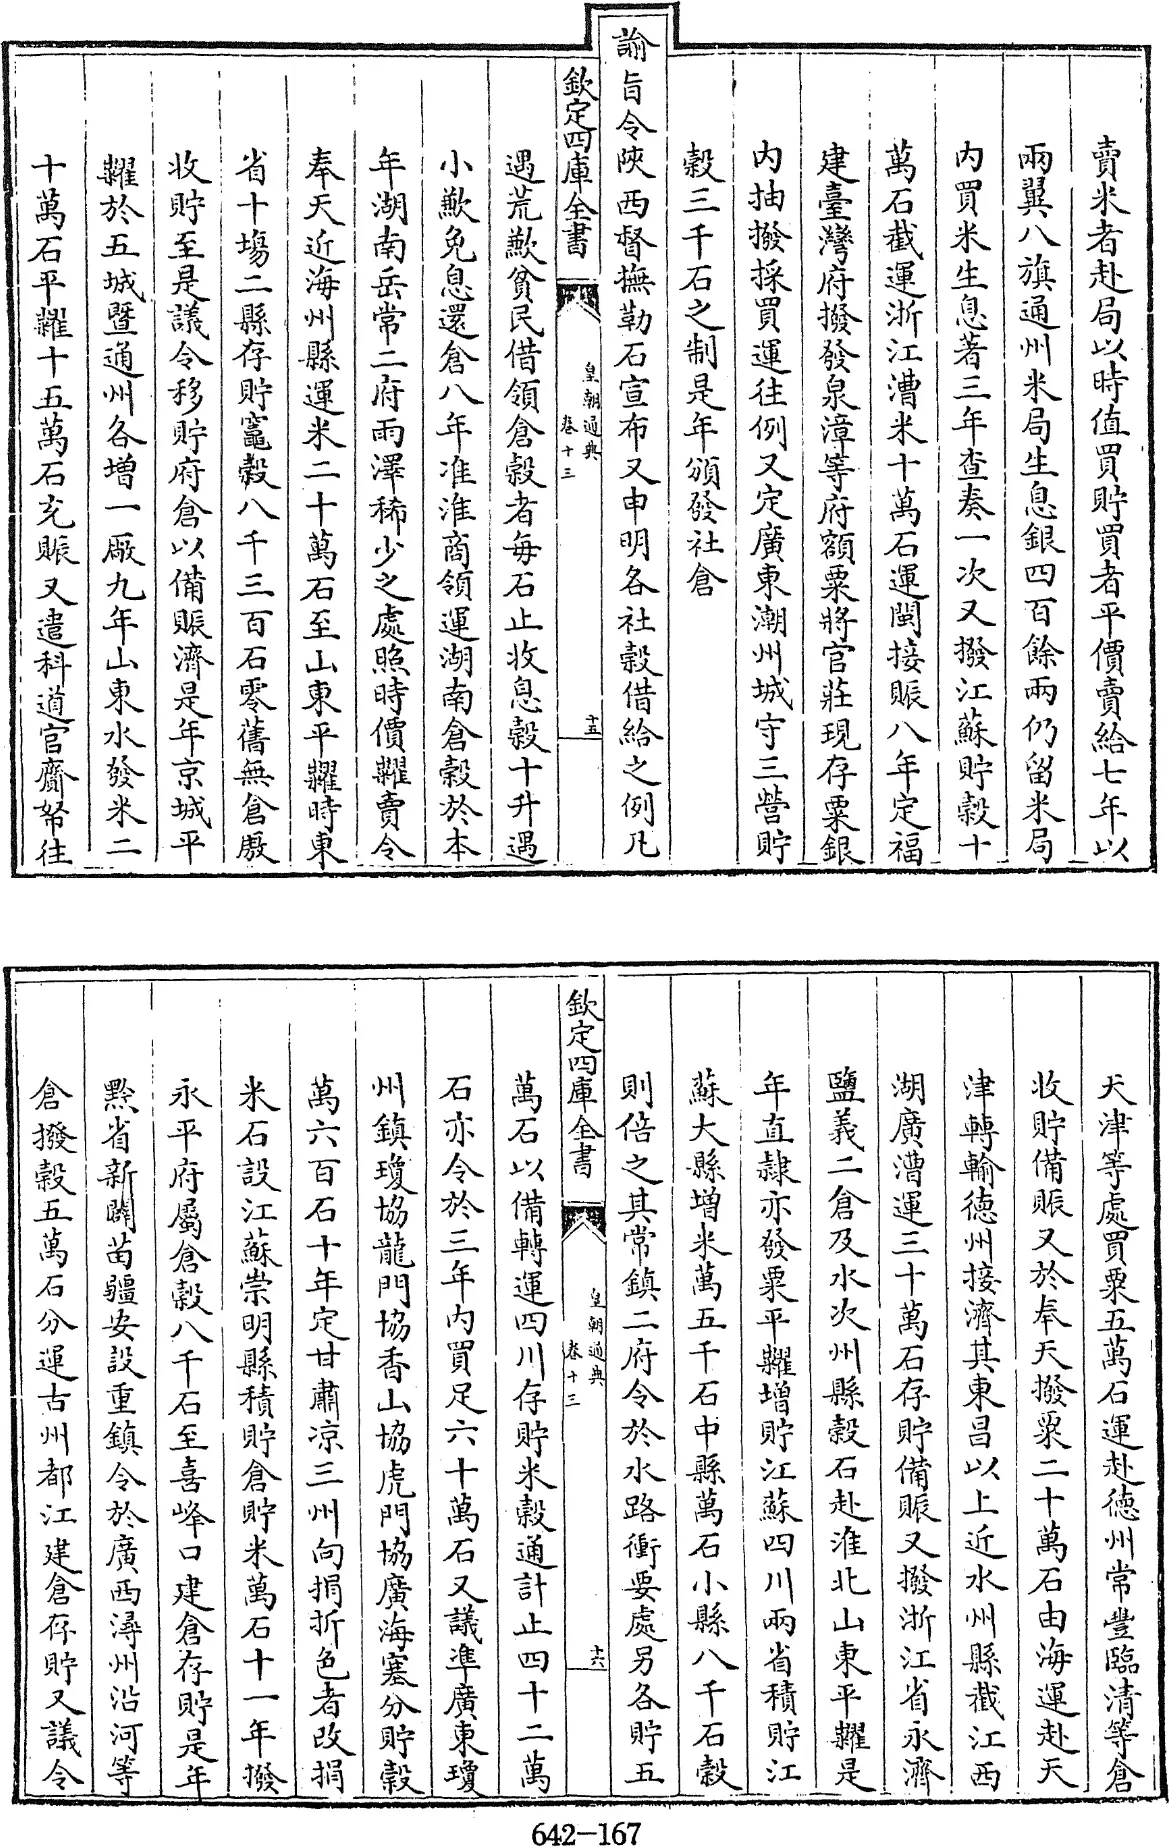 賣米者赴局以時值買貯買者平價賣給七年以
兩翼八旗通州米局生息銀四百餘兩仍留米局
内買米生息著三年查奏一次又撥江蘇貯穀十
萬石截運浙江漕米十萬石運閩接賑八年定福
建臺灣府撥發泉漳等府額粟將官莊現存粟銀
内抽撥採買運往例又定廣東潮州城守三營貯
穀三千石之制是年頒發社倉
諭旨令陜西督撫勒石宣布又申明各社穀借給之例凡
欽定四庫全書
皇朝通典
卷十三
十五
遇荒歉貧民借領倉穀者每石止收息穀十升遇
小歉免息還倉八年准淮商領運湖南倉穀於本
年湖南岳常二府雨澤稀少之處照時價糶賣令
奉天近海州縣運米二十萬石至山東平糶時東
省十塲二縣存貯竈穀八千三百石零舊無倉厫
收貯至是議令移貯府倉以備賑濟是年京城平
糶於五城暨通州各增一厰九年山東水發米二
十萬石平糶十五萬石充賑又遣科道官齎帑往
天津等處買粟五萬石運赴德州常豐臨清等倉
收貯備賑又於奉天撥粟二十萬石由海運赴天
津轉輸德州接濟其東昌以上近水州縣截江西
湖廣漕運三十萬石存貯備賑又撥浙江省永濟
鹽義二倉及水次州縣穀石赴淮北山東平糶是
年直隷亦發粟平糶增貯江蘇四川兩省積貯江
蘇大縣增米萬五千石中縣萬石小縣八千石穀
則倍之其常鎮二府令於水路衝要處另各貯五
欽定四庫全書
皇朝通典
卷十三
十六
萬石以備轉運四川存貯米穀通計止四十二萬
石亦令於三年内買足六十萬石又議準廣東瓊
州鎮瓊協龍門協香山協虎門協廣海寨分貯穀
萬六百石十年定甘肅凉三州向捐折色者改捐
米石設江蘇崇明縣積貯倉貯米萬石十一年撥
永平府屬倉穀八千石至喜峰口建倉存貯是年
黔省新闢苗疆安設重鎮令於廣西潯州沿河等
倉撥穀五萬石分運古州都江建倉存貯又議令
642-167